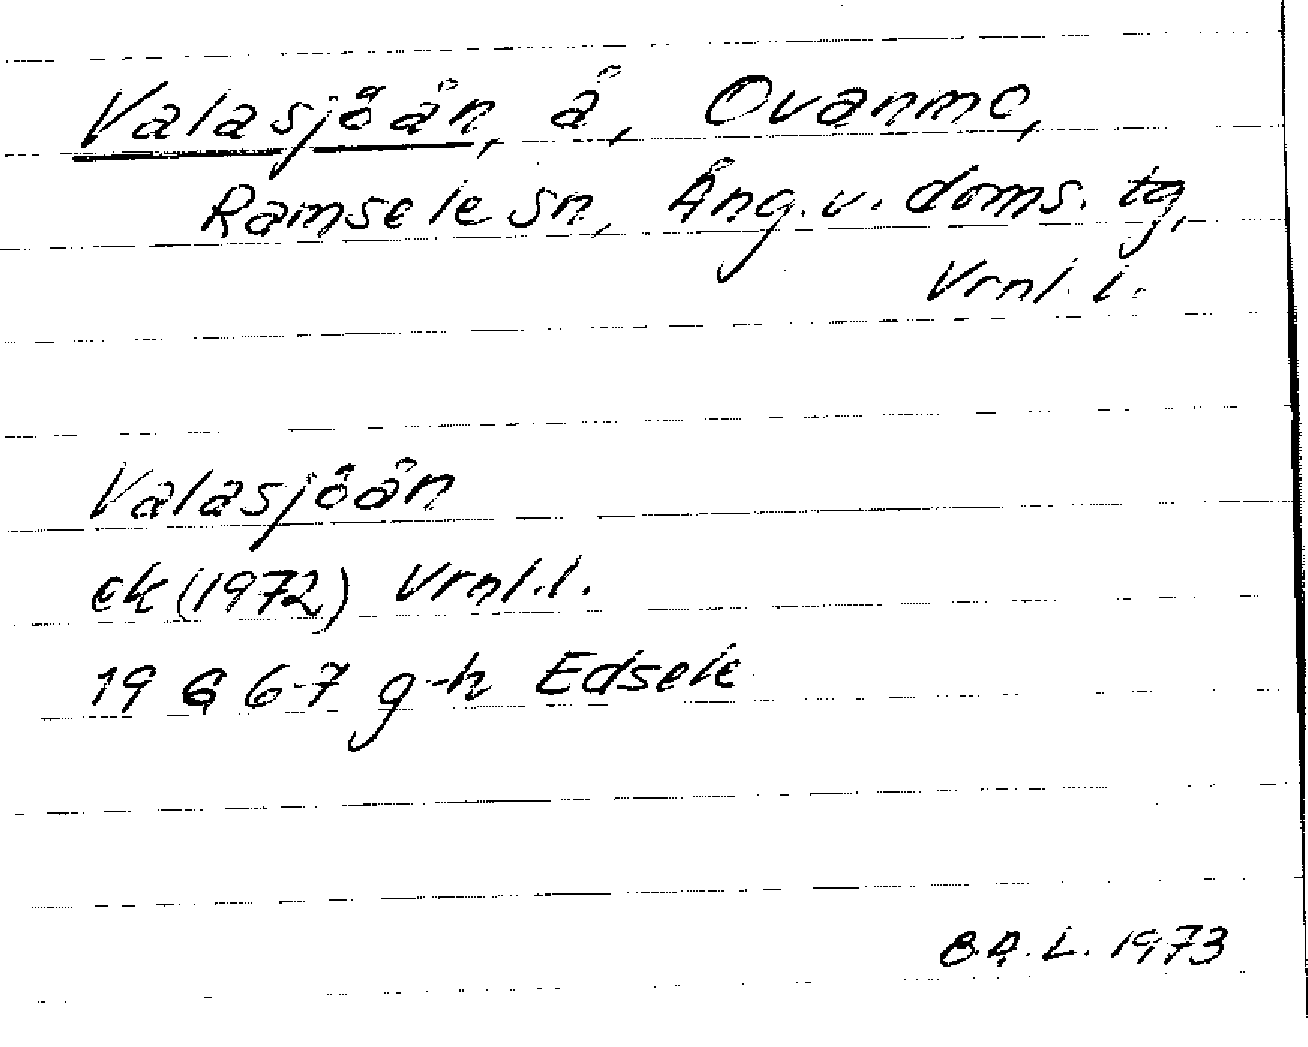 Valasjöån, å, Ovanmo,
Ramsele sn, Ång. v. doms. tg,
Vrnl. l.
Valasjöån
ek (1972) Vrnl. l.
19 G 6-7 g-h Edsele
B.A.L. 1973